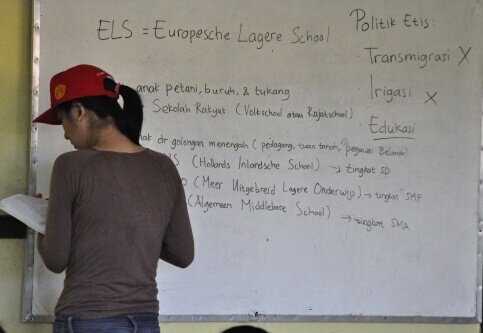 ELS = Europesche Lagere School
anak petani, buruh, & tukang
Sekolah Rakyat (Volkschool atau Rajatschool)
dr golongan menengah (pedagang, tuan tanah, pegawai Belanda)
(Hollands Inlandsche School) → tingkat SD
(Meer Uitgebreid Lagere Onderwijs) → tingkat SMP
(Algemeen Middlebare School) → tingkat SMA
Politik Etis:
Transmigrasi X
Irigasi X
Edukasi